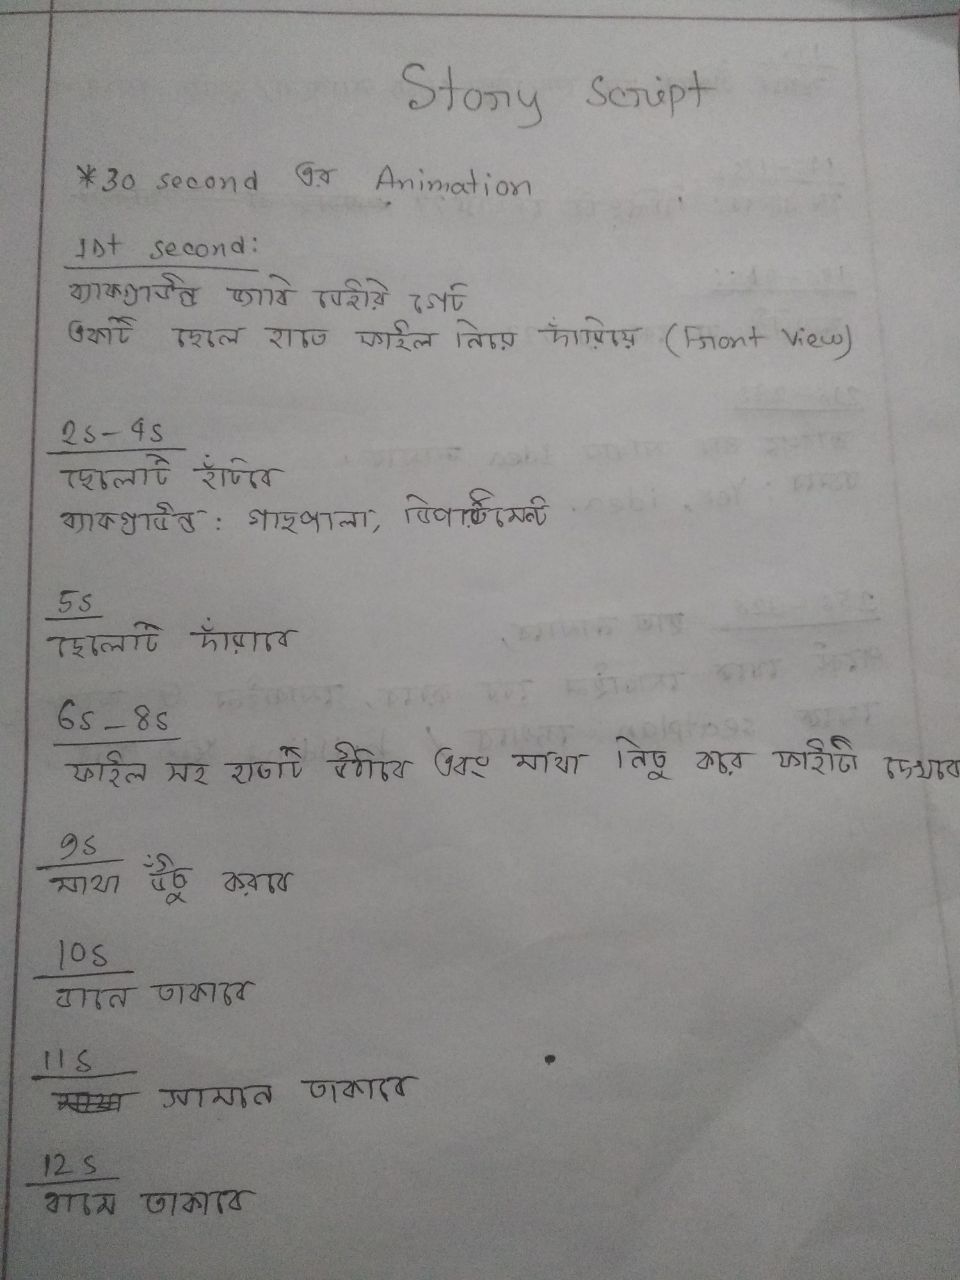 Story Script
*30 second এর Animation
1st second:
ব্যাকগ্রাউন্ড
একটি ছেলে হাতে ফাইল নিয়ে দাঁড়িয়ে (Front View)
2s-4s
ছেলেটি হাঁটবে
ব্যাকগ্রাউন্ড: গাছপালা, ডিপার্টমেন্ট
5s
ছেলেটি দাঁড়াবে
6s-8s
ফাইল সহ হাতটি উঠাবে এবং মাথা নিচু করে ফাইটা দেখবে
9s
মাথা উঁচু করবে
10s
ডানে তাকাবে
11s
সামনে তাকাবে
12s
বামে তাকাবে